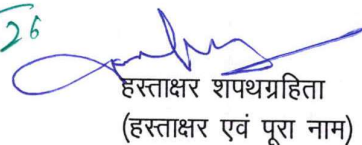 26
हस्ताक्षर शपथग्रहिता
(हस्ताक्षर एवं पूरा नाम)